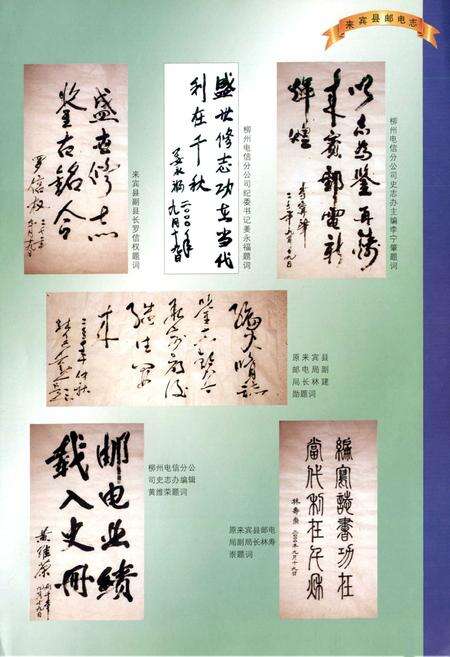 来宾县邮电志
盛世修志
鉴古铭今
罗信权
来宾县副县长罗信权题词
盛世修志功在当代
利在千秋
姜永福
柳州电信分公司纪委书记姜永福题词
以志为鉴再铸
来宾邮电新
辉煌
李宁肇
柳州电信分公司史志办主编李宁肇题词
原来宾县
邮电局副
局长林建
勋题词
邮电业绩
载入史册
黄维荣
柳州电信分公
司史志办编辑
黄维荣题词
编写志书功在
当代利在千秋
林寿崇
原来宾县邮电
局副局长林寿
崇题词